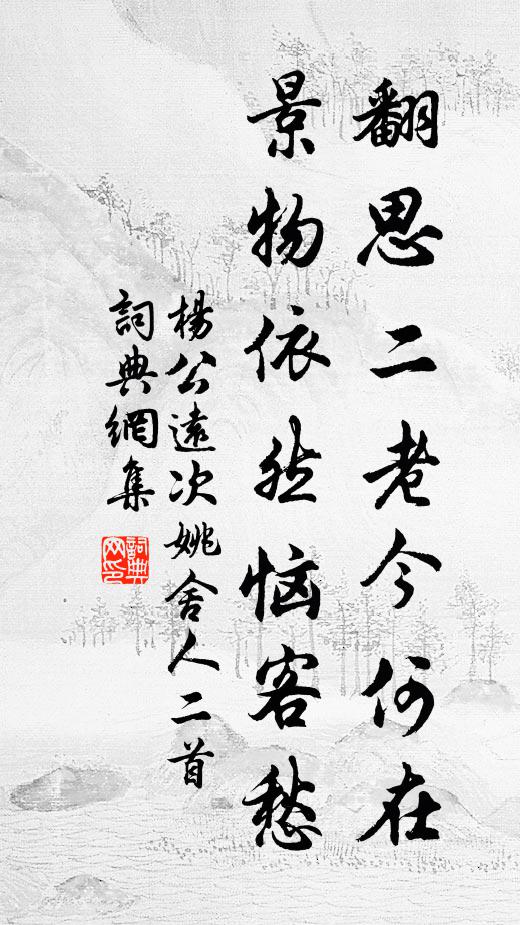 翻思二老今何在
景物依然惱客愁
楊公遠次姚舍人二首
詞典網集
詞典網印